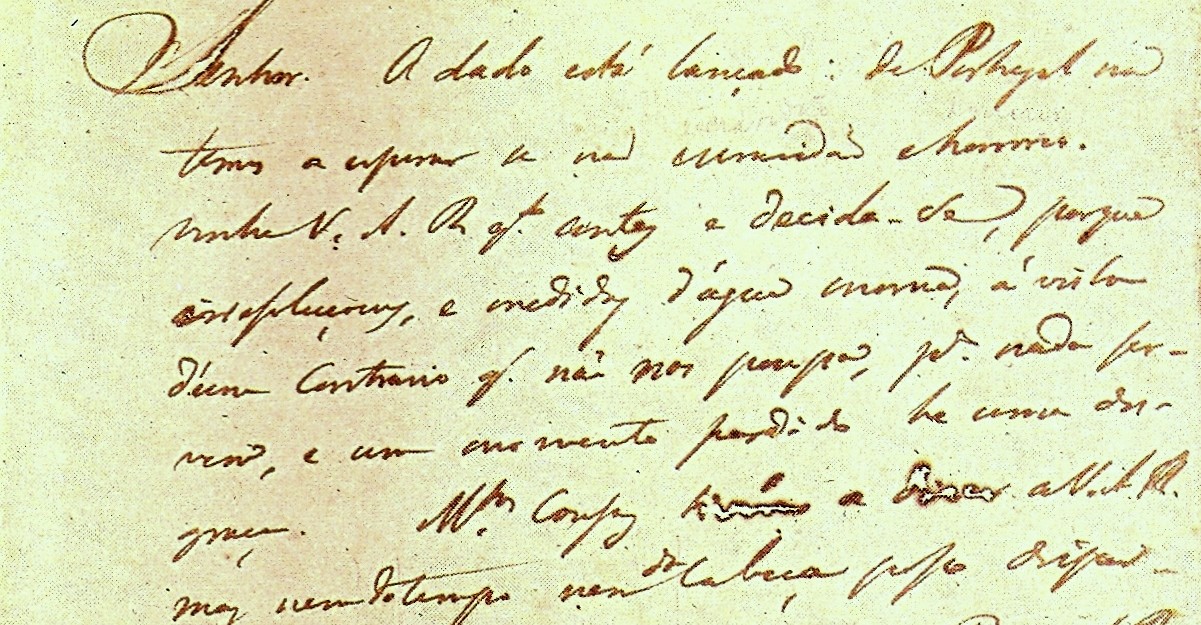 Senhor. A dado está lançado: de Portugal não
temos a esperar se não escravidão e horrores.
venha V. A. R. q.to antes e decida-se, porque
irresoluçoens, e medidas d'água morna, á vista
d'esse Contrario q. não nos poupa, p.a nada ser-
vem, e um momento perdido he uma des-
graça. M.tas Cousas a dizer a V. A. R.
mas nem do tempo nem da Cabeça posso dispor-